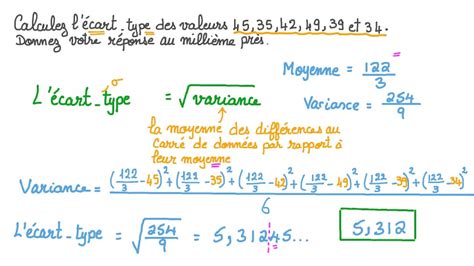 Calculez l'écart-type des valeurs 45,35,42,49,39 et 34.
Donnez votre réponse au millième près.
Moyenne = 122/3
σ
L'écart-type = √variance
Variance = 254/9
la moyenne des différences au
carré de données par rapport à
leur moyenne
Variance = ((122/3 - 45)² + (122/3 - 35)² + (122/3 - 42)² + (122/3 - 49)² + (122/3 - 39)² + (122/3 - 34)²) / 6
L'écart-type = √(254/9) = 5,31245... 5,312